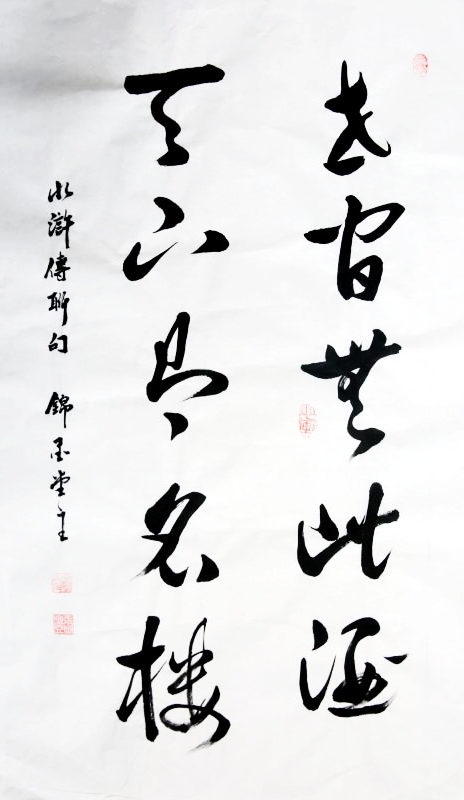 世間無此酒
天下有名樓
水滸傳聯句 錦墨堂主